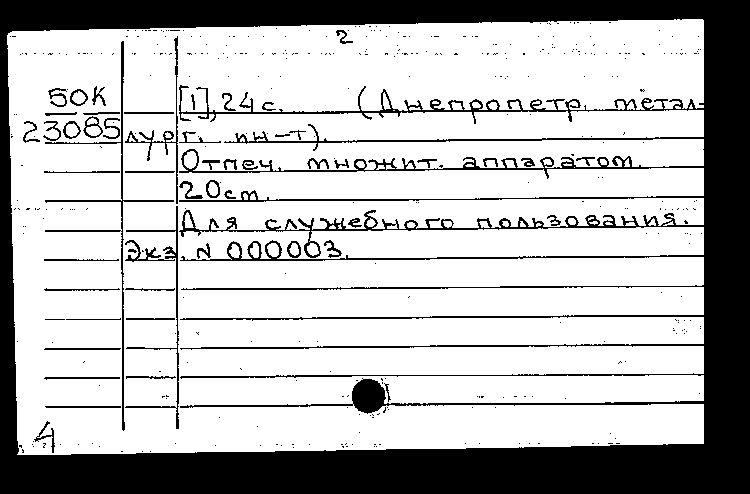 2
50К [1], 24 с. (Днепропетр. метал-
23085 лург. ин-т).
Отпеч. множит. аппаратом.
20 cm.
Для служебного пользования.
Экз. N 000003.
4